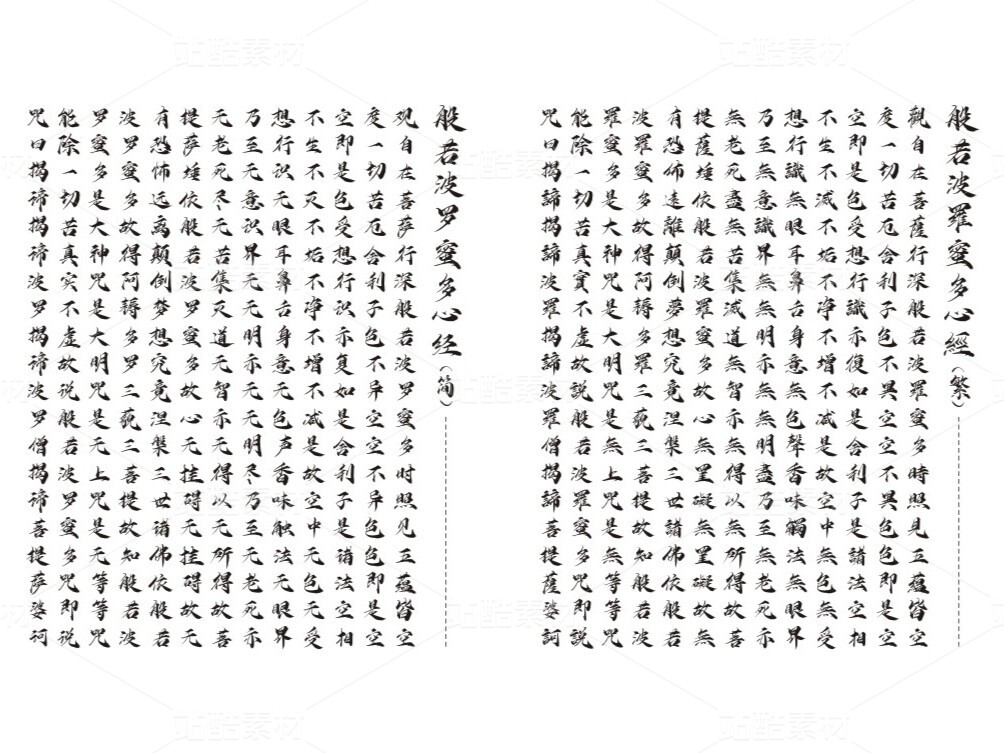 般若波羅蜜多心經（繁）
觀自在菩薩行深般若波羅蜜多時照見五蘊皆空
度一切苦厄舍利子色不異空空不異色色即是空
空即是色受想行識亦復如是舍利子是諸法空相
不生不滅不垢不净不增不减是故空中無色無受
想行識無眼耳鼻舌身意無色聲香味觸法無眼界
乃至無意識界無無明亦無無明盡乃至無老死亦
無老死盡無苦集滅道無智亦無得以無所得故菩
提薩埵依般若波羅蜜多故心無罣礙無罣礙故無
有恐佈遠離顛倒夢想究竟涅槃三世諸佛依般若
波羅蜜多故得阿耨多羅三藐三菩提故知般若波
羅蜜多是大神咒是大明咒是無上咒是無等等咒
能除一切苦真實不虛故說般若波羅蜜多咒即說
咒曰揭諦揭諦波羅揭諦波羅僧揭諦菩提薩婆訶
般若波罗蜜多心经（简）
观自在菩萨行深般若波罗蜜多时照见五蕴皆空
度一切苦厄舍利子色不异空空不异色色即是空
空即是色受想行识亦复如是舍利子是诸法空相
不生不灭不垢不净不增不减是故空中无色无受
想行识无眼耳鼻舌身意无色声香味触法无眼界
乃至无意识界无无明亦无无明尽乃至无老死亦
无老死尽无苦集灭道无智亦无得以无所得故菩
提萨埵依般若波罗蜜多故心无挂碍无挂碍故无
有恐怖远离颠倒梦想究竟涅槃三世诸佛依般若
波罗蜜多故得阿耨多罗三藐三菩提故知般若波
罗蜜多是大神咒是大明咒是无上咒是无等等咒
能除一切苦真实不虚故说般若波罗蜜多咒即说
咒曰揭谛揭谛波罗揭谛波罗僧揭谛菩提萨婆诃
站酷素材
站酷素材
站酷素材
站酷素材